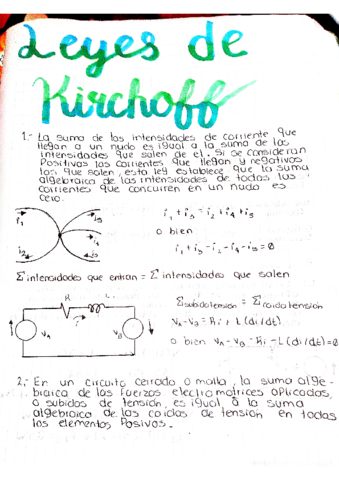 Leyes de
Kirchoff
1.- La suma de las intensidades de corriente que
llegan a un nudo es igual a la suma de las
intensidades que salen de el. Si se consideran
Positivas las corrientes que llegan y negativas
las que salen, esta ley establece que la suma
algebraica de las intensidades de todas las
corrientes que concurren en un nudo es
cero.
i₁ + i₃ = i₂ + i₄ + i₅
o bien
i₁ + i₃ - i₂ - i₄ - i₅ = 0
i₁
i₃
i₄
i₂
i₅
Σ intensidades que entran = Σ intensidades que salen
R
L
i
V_A
V_B
Σ subida tension = Σ caida tension
V_A - V_B = Ri + L (di/dt)
o bien V_A - V_B - Ri - L (di/dt) = 0
2.- En un circuito cerrado o malla, la suma alge-
braica de las fuerzas electromotrices aplicadas,
o subidas de tensión, es igual a la suma
algebraica de las caidas de tensión en todos
los elementos Pasivos.